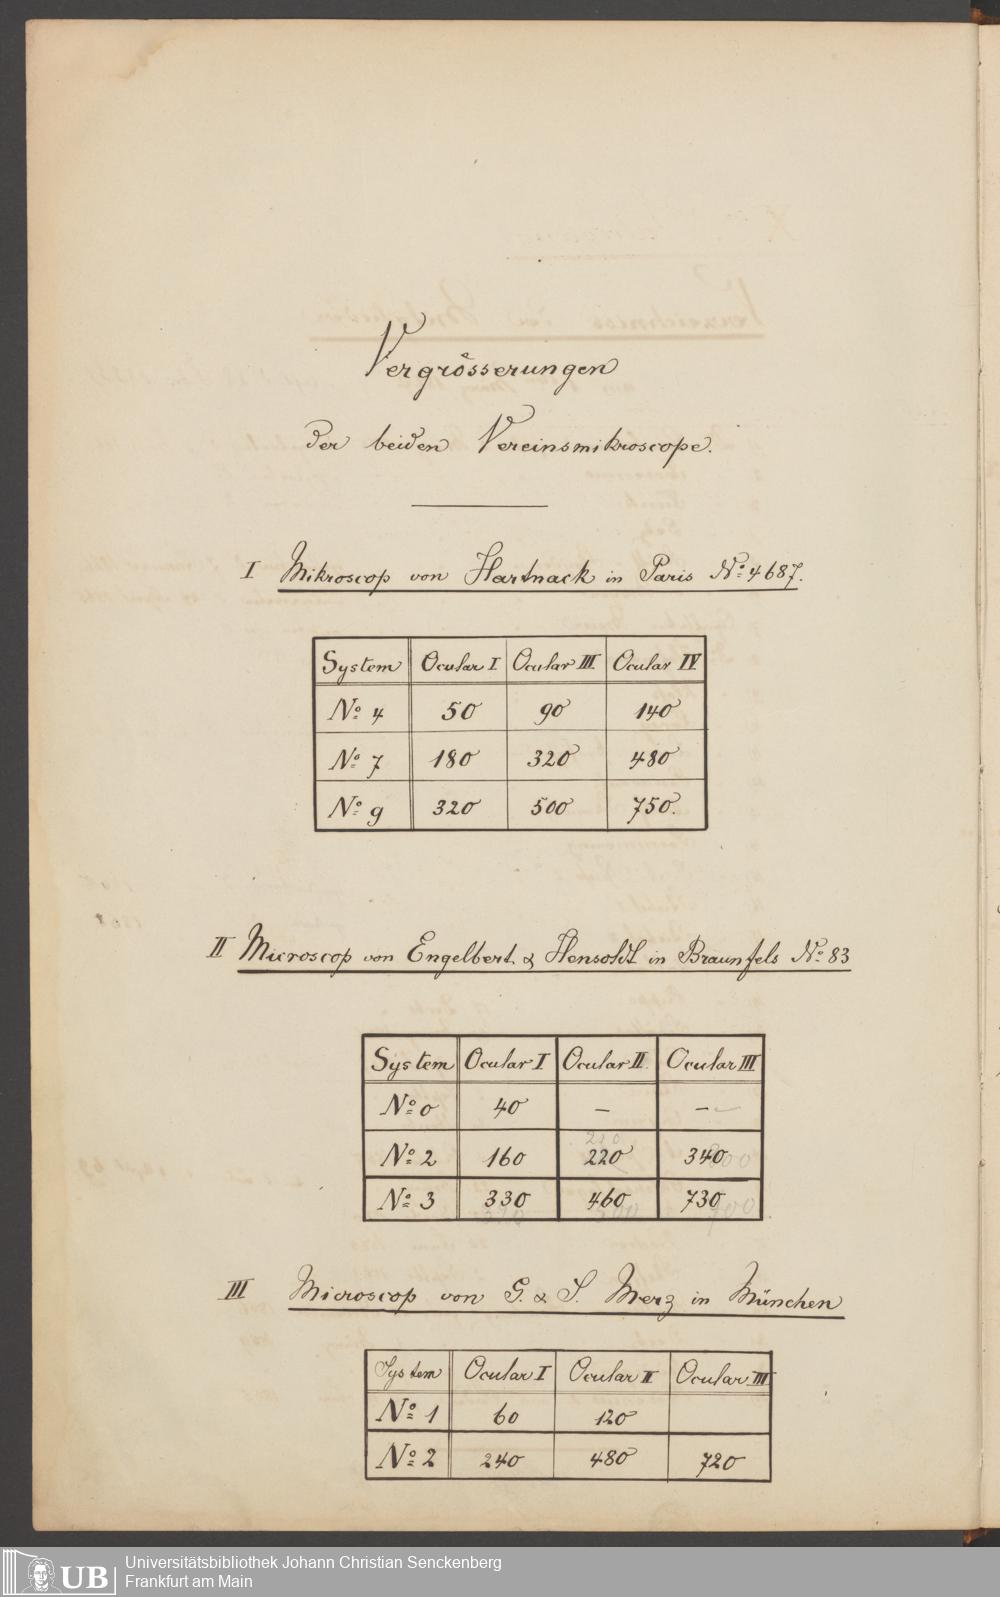 Vergrösserungen
der beiden Vereinsmikroscope.
I Mikroscop von Hartnack in Paris No: 4687.
System Ocular I Ocular III. Ocular IV.
No: 4 50 90 140
No: 7 180 320 480
No: 9 320 500 750.
II Microscop von Engelbert & Hensoldt in Braunfels No: 83
System Ocular I Ocular II. Ocular III
No: 0 40 – –
220
No: 2 160 220 340
No: 3 330 460 730
320 500 700
III Microscop von G. & S. Merz in München
System Ocular I Ocular II Ocular III
No: 1 60 120
No: 2 240 480 720
UB Universitätsbibliothek Johann Christian Senckenberg
Frankfurt am Main